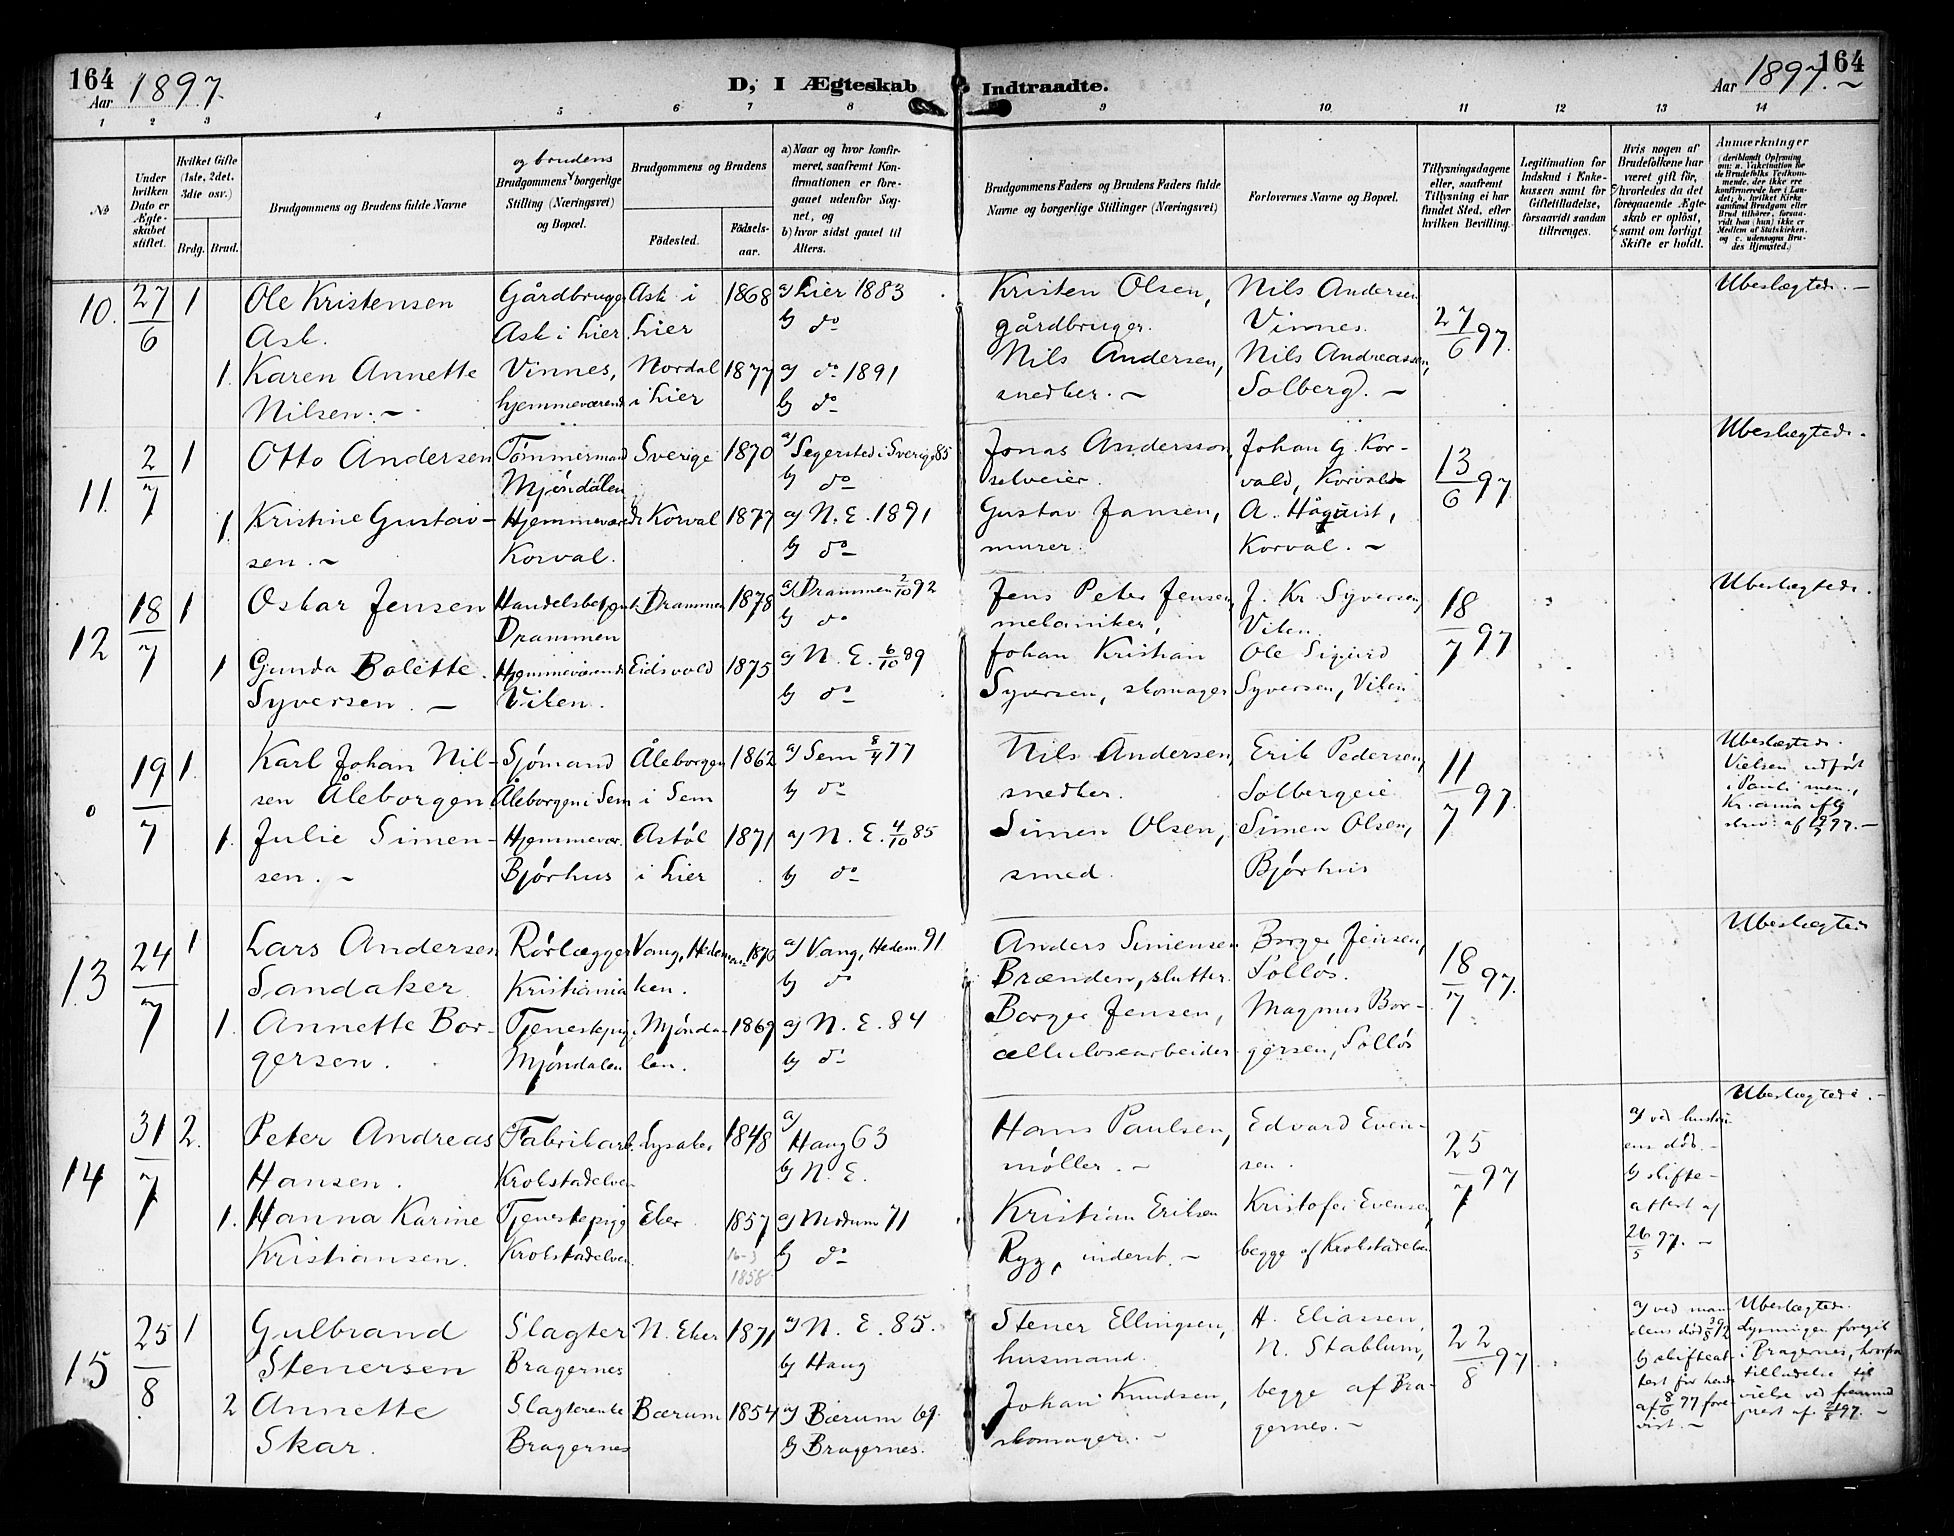 164
Aar 1897.
D, I Ægteskab Indtraadte.
Aar 1897. ~
164
1 2 3 4 5 6 7 8 9 10. 11 12 13 14
No
Under hvilken Dato er Ægteskabet stiftet.
Hvilket Gifte (1ste, 2det, 3die osv.)
Brdg. Brud.
Brudgommens og Brudens fulde Navne
og brudens
Brudgommens borgerlige Stilling (Næringsvei) og Bopæl.
Brudgommens og Brudens
Fødested. Fødselsaar.
a) Naar og hvor konfirmeret, saafremt Konfirmationen er foregaaet udenfor Sognet, og
b) hvor sidst gaaet til Alters.
Brudgommens Faders og Brudens Faders fulde Navne og borgerlige Stillinger (Næringsvei)
Forlovernes Navne og Bopæl.
Tillysningsdagene eller, saafremt Tillysning ei har fundet Sted, efter hvilken Bevilling.
Legitimation for Indskud i Enkekassen samt for Giftetilladelse, forsaavidt saadan tiltrænges.
Hvis nogen af Brudefolkene har været gift før, hvorledes da det foregaaende Ægteskab er opløst, samt om lovligt Skifte er holdt.
Anmærkninger
10. 27/6 1 Ole Kristensen Gårdbruger Ask i 1868 a) Lier 1883 Kristen Olsen, Nils Andersen 27/6 97. Ubeslægtede. —
Ask. Ask i Lier. Lier b) do gårdbruger. Vinnes.
1. Karen Annette Vinnes, Nordal 1877 a) do 1891 Nils Andersen, Nils Andreassen,
Nilsen. — hjemmeværend i Lier b) do snedker. — Solberg. —
11. 2/7 1 Otto Andersen Tømmermand Sverige 1870 a) Segersted i Sverige 85 Jonas Andersson, Johan G. Kor- 13/6 97 Ubeslægtede.
Mjøndalen b) do selveier. vald, Korvald
1. Kristine Gustav- Hjemmeværende Korval 1877 a) N. E. 1891 Gustav Jansen, A. Håquist,
sen. — Korval. b) do murer. Korval. —
12 18/7 1 Oskar Jensen Handelsbetjent Drammen 1878 a) Drammen 2/10 92 Jens Peter Jensen, J. Kr. Syversen, 18/7 97 Ubeslægtede.
Drammen b) do mekaniker, Viken.
1 Gunda Bolette Hjemmeværende Eidsvold 1875 a) N. E. 6/10 89 Johan Kristian Ole Sigurd
Syversen. — Viken. b) do Syversen, skomager Syversen, Viken
o 19/7 1. Karl Johan Nil- Sjømand Åleborgen 1862 a) Sem 8/4 77 Nils Andersen, Erik Pedersen, 11/7 97. Ubeslægtede.
sen Åleborgen Åleborgen i Sem i Sem b) do snedker. Solbergeie. Vielsen udført
1. Julie Simen- Hjemmevær. Astøl 1871 a) N. E. 4/10 85 Simen Olsen, Simen Olsen,
sen. — Bjørhus i Lier b) do smed. Bjørhus
13 24/7 1 Lars Andersen Rørlægger Vang, Hedemar- 1870 a) Vang, Hedem. 91 Anders Simensen Borger Jensen, 18/7 97. Ubeslægtede
Sandaker Kristiania ken. b) do Brænden, slutter. Solløs.
1. Annette Bor- Tjenestepig. Mjønda- 1869 a) N. E. 84 Borger Jensen, Magnus Bor-
gersen. Mjøndalen len. b) do cellulosearbeider. gersen, Solløs
14 31/7 2. Peter Andreas Fabrikarb. 1848 a) Haug 63 Hans Paulsen, Edvard Even- 25/7 97 a) ved hustru- Ubeslægtede. —
Hansen. Krokstadelven b) N. E. møller. — sen. ens død. —
1. Hanna Karine Tjenestepige Eker. 1857 a) Modum 71 Kristian Eriksen Kristofer Evensen, b) skifte-
Kristiansen. Krokstadelven. 16-3 1858 b) do Ryg, inderst. — begge af Krokstadelven attest af 26/5 97. —
15 25/8 1 Gulbrand Slagter N. Eker 1871 a) N. E. 85. Stener Ellingsen, H. Eliassen, 22/8 97 a) ved man- Ubeslægtede.
Stenersen Bragernes b) Haug husmand. N. Stablum, dens død Lysningen foregik
2 Annette Slagterenke Bærum 1854 a) Bærum 69. Johan Knudsen, begge af Bra- b) skifteat- i Bragernes, hvorfra
Skar. Bragernes b) Bragernes. skomager. — gernes. — test for hende tilladelse til
af 8/6 97 fore- vielse ved fremmed
vist. — prest af